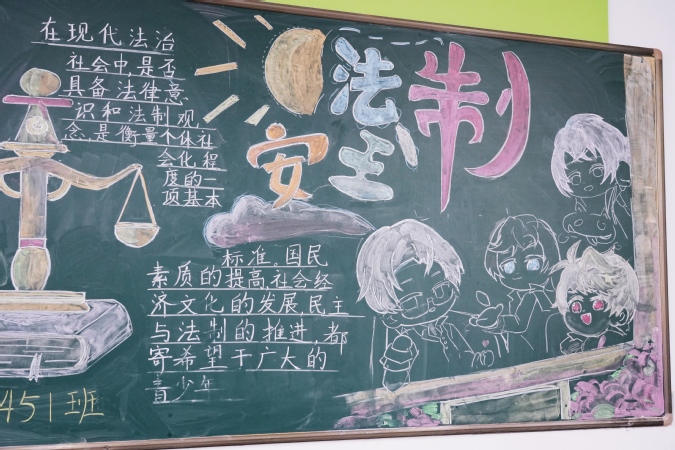 法制
安全
在现代法治
社会中,是否
具备法律意
识和法制观
念,是衡量个体社
会化,程
度的一
项基本
标准。国民
素质的提高,社会经
济文化的发展,民主
与法制的推进,都
寄希望于广大的
青少年
451班